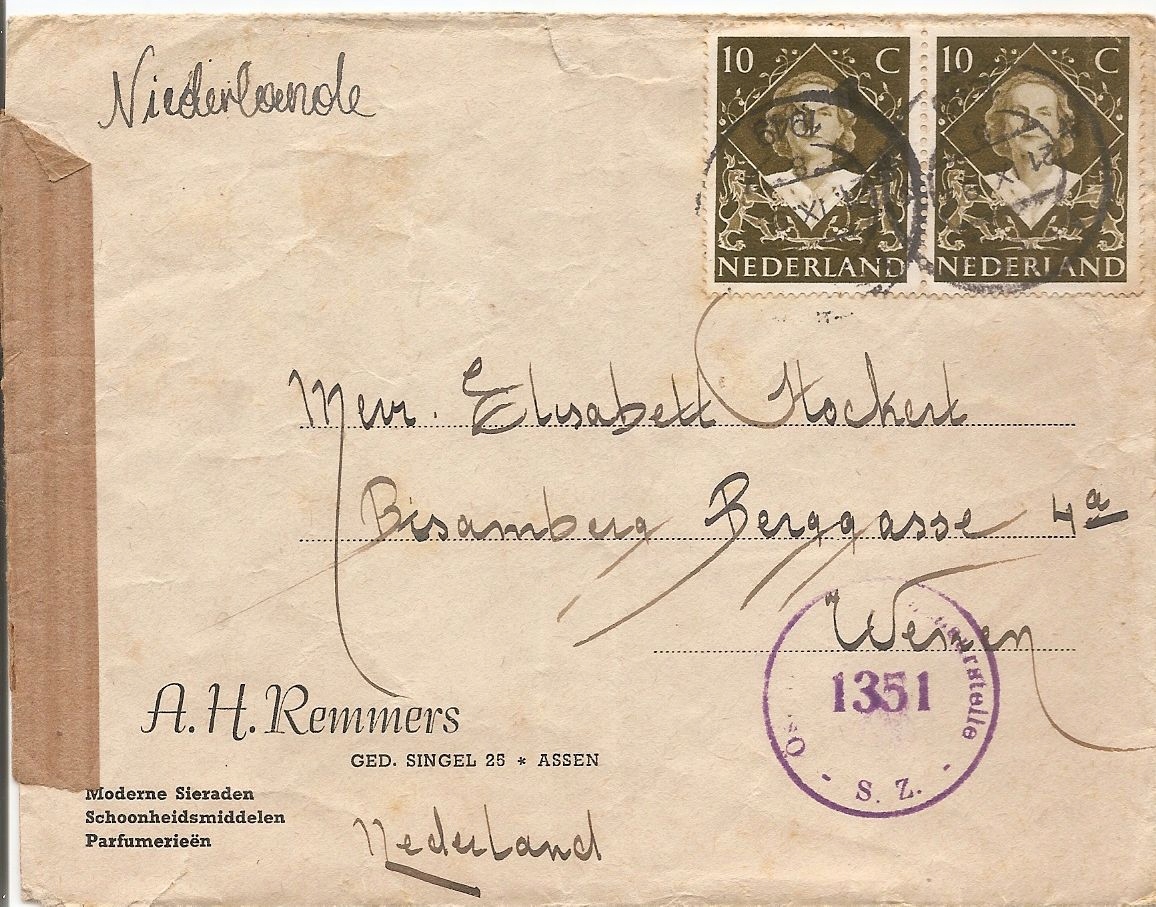 Niederlande
10 C 10 C
NEDERLAND NEDERLAND
21 IX 8 1949
21 IX
Mevr. Elisabett Hockert
Bisamberg Berggasse 4a
Wenen
1351
S. Z.
A. H. Remmers
GED. SINGEL 25 * ASSEN
Moderne Sieraden
Schoonheidsmiddelen
Parfumerieën
Nederland